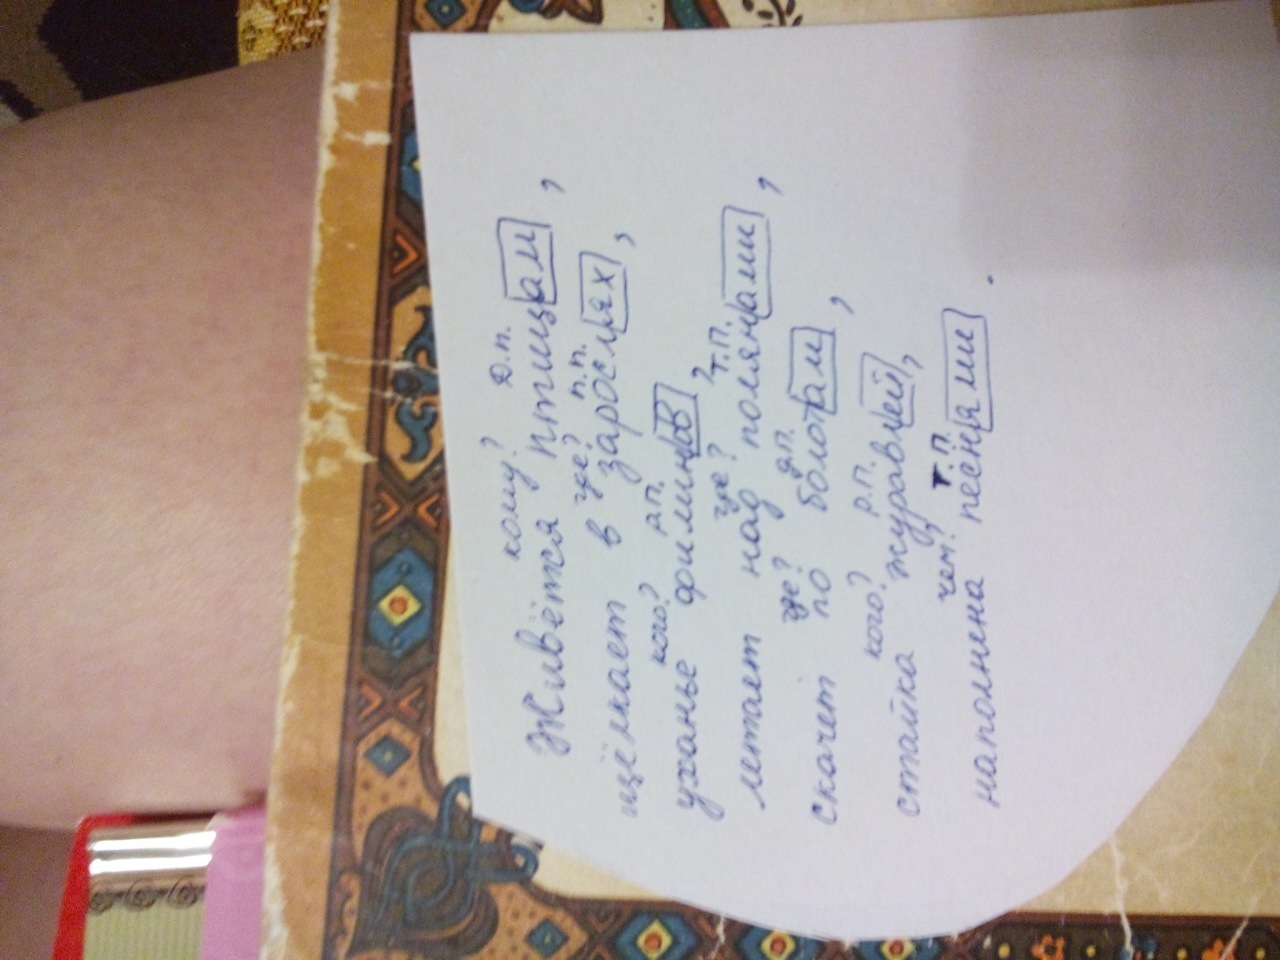 кому? Д.п.
Живётся птицам,
где? п.п.
щёлкает в зарослях,
кого? р.п.
уханье филинов,
где? т.п.
летает над полянами,
где? д.п.
скачет по болотам,
кого? р.п.
стайка журавлей,
чем? т.п.
наполнена песнями.